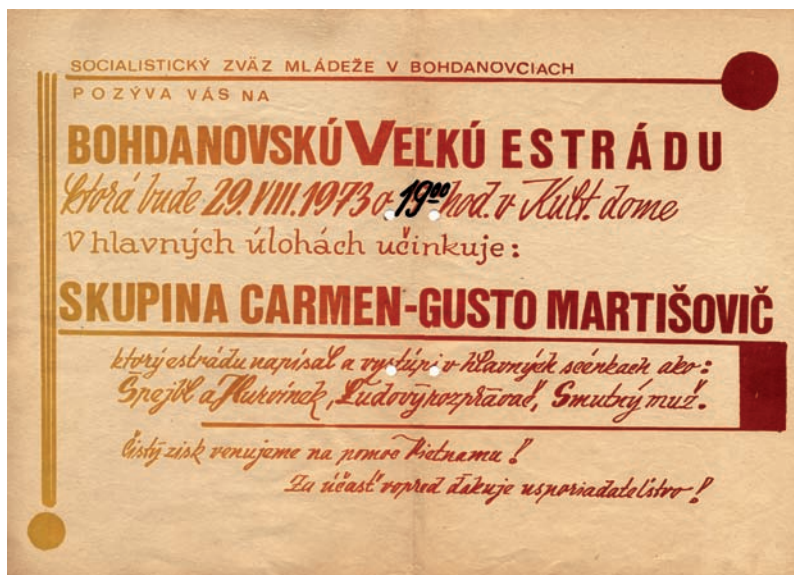 SOCIALISTICKÝ ZVÄZ MLÁDEŽE V BOHDANOVCIACH
POZÝVA VÁS NA
BOHDANOVSKÚ VEĽKÚ ESTRÁDU
ktorá bude 29.VIII.1973 o 19⁰⁰ hod. v Kult. dome
V hlavných úlohách učinkuje:
SKUPINA CARMEN-GUSTO MARTIŠOVIČ
ktorý estrádu napísal a vystúpi v hlavných scénkach ako:
Špejbl a Hurvínek, Ľudový rozprávač, Smutný muž.
Čistý zisk venujeme na pomoc Vietnamu!
Za účasť vopred ďakuje usporiadateľstvo!